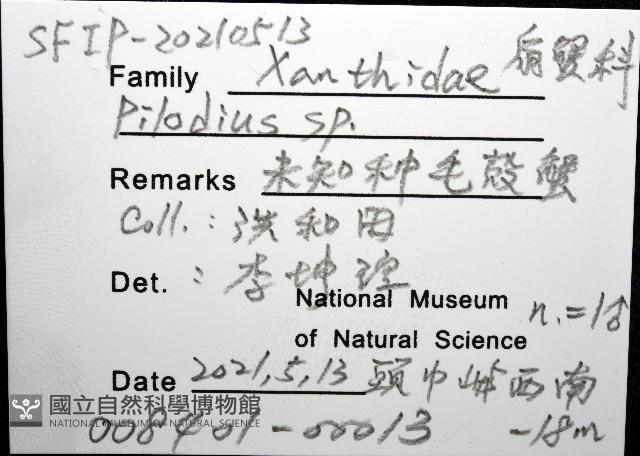 SFIP-20210513
Family Xanthidae 扇蟹科
Pilodius sp.
Remarks 未知种毛殼蟹
Coll. : 洪和田
Det. : 李坤瑄
National Museum
of Natural Science
n.=1♂
Date 2021,5,13 頭巾嶼西南
-18m
國立自然科學博物館
NATIONAL MUSEUM OF NATURAL SCIENCE
008401-00013